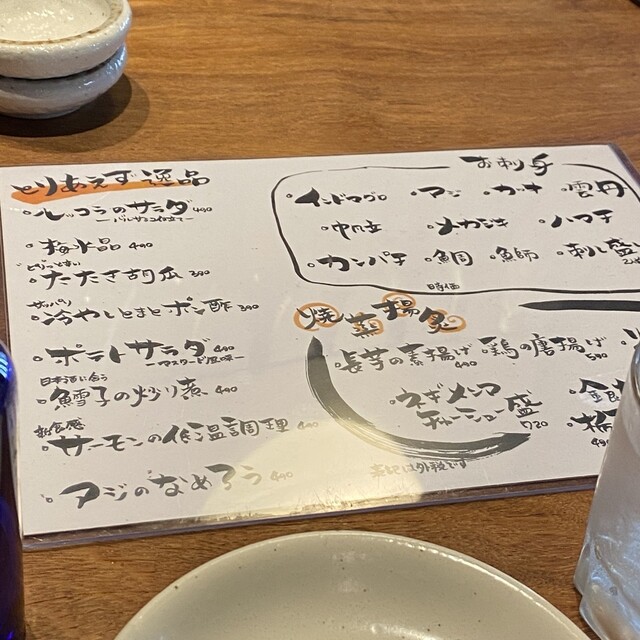 とりあえず逸品
ルッコラのサラダ 490
ーバルサミコ仕立てー
梅水晶 490
ピリッと辛い
たたき胡瓜 390
サッパリ
冷やしとまとポン酢 390
ポテトサラダ 490
ーマスタード風味ー
日本酒に合う
鱈子の炒り煮 490
新食感
サーモンの低温調理 490
アジのなめろう 490
お刺身
インドマグロ アジ カツオ 雲丹
帆立 メカジキ ハマチ
カンパチ 鯛 鰤 刺し盛
時価
焼 蒸 揚 食
長芋の素揚げ 490 鶏の唐揚げ 590
ネギメンマ
チャーシュー盛 720
表記は外税です